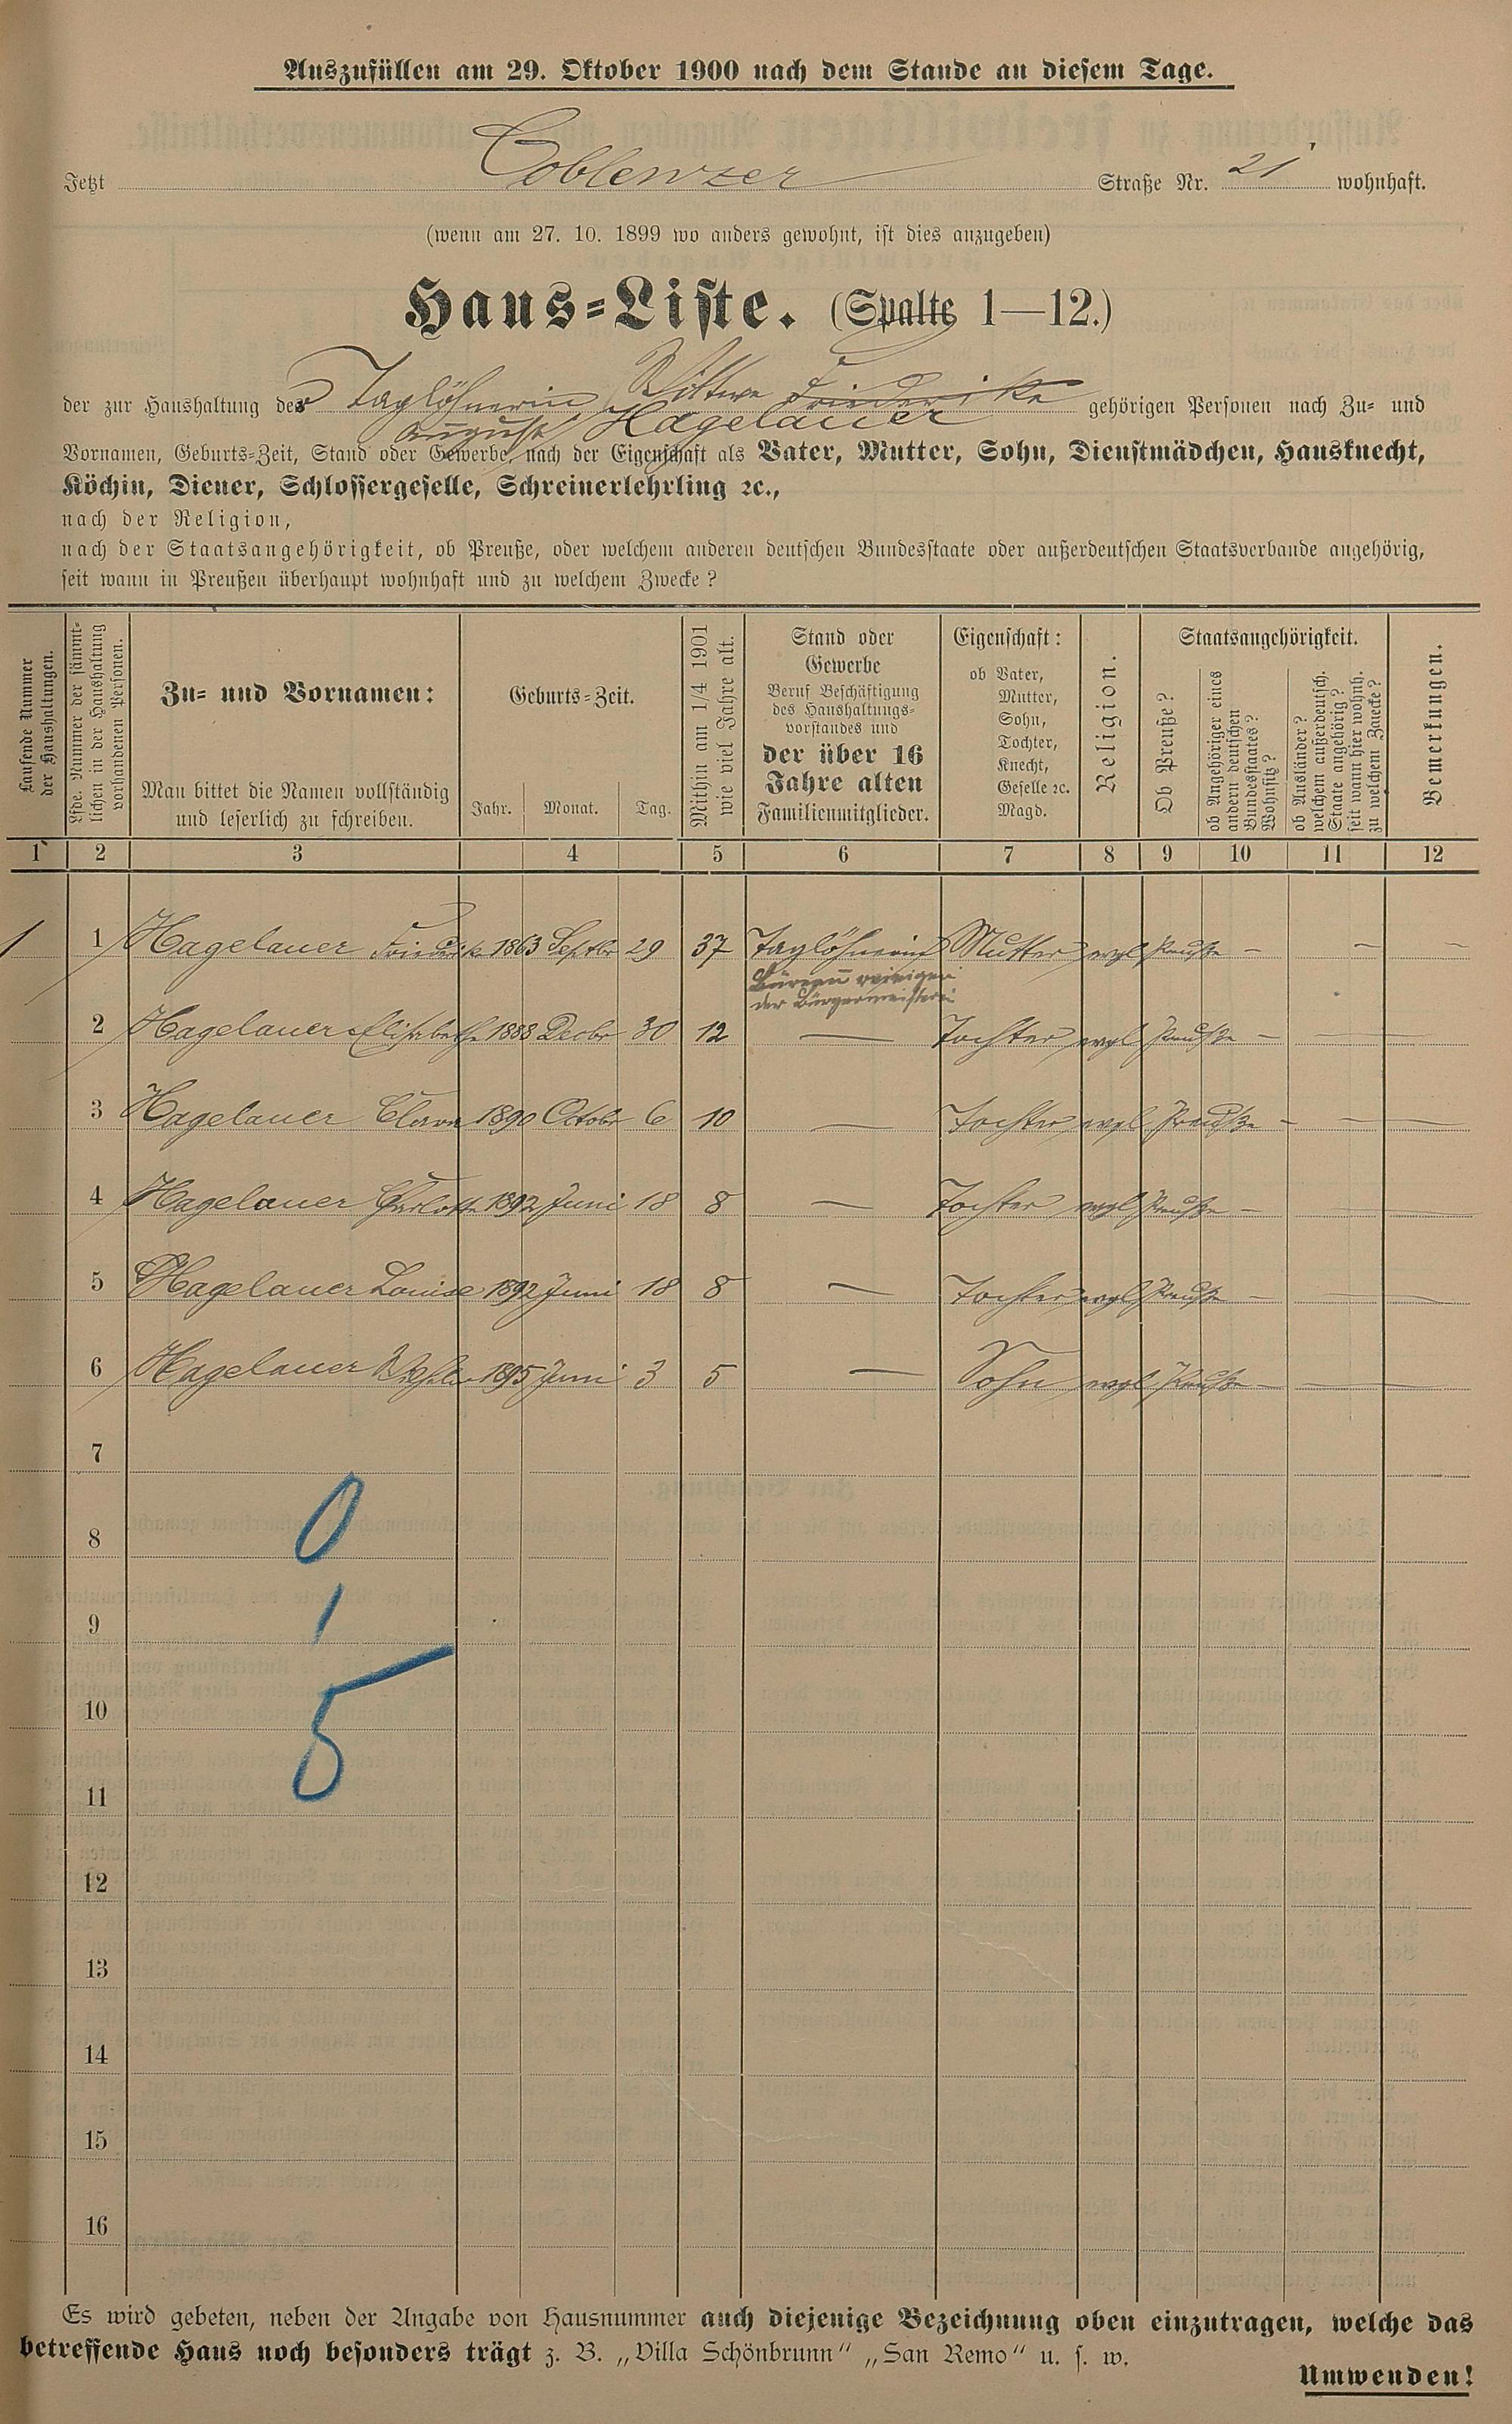 Auszufüllen am 29. Oktober 1900 nach dem Stande an diesem Tage.
Jetzt Coblenzer Straße Nr. 21 wohnhaft.
(wenn am 27. 10. 1899 wo anders gewohnt, ist dies anzugeben)
Haus-Liste. (Spalte 1—12.)
der zur Haushaltung der Taglöhnerin Wittwe Friederike gehörigen Personen nach Zu- und
August Hagelauer
Vornamen, Geburts-Zeit, Stand oder Gewerbe, nach der Eigenschaft als Vater, Mutter, Sohn, Dienstmädchen, Hausknecht,
Köchin, Diener, Schlossergeselle, Schreinerlehrling ꝛc.,
nach der Religion,
nach der Staatsangehörigkeit, ob Preuße, oder welchem anderen deutschen Bundesstaate oder außerdeutschen Staatsverbande angehörig,
seit wann in Preußen überhaupt wohnhaft und zu welchem Zwecke?
Laufende Nummer der Haushaltungen.
Lfde. Nummer der sämmtlichen in der Haushaltung vorhandenen Personen.
Zu- und Vornamen:
Man bittet die Namen vollständig
und leserlich zu schreiben.
Geburts-Zeit.
Jahr. Monat. Tag.
Mithin am 1/4 1901 wie viel Jahre alt.
Stand oder
Gewerbe
Beruf Beschäftigung
des Haushaltungs-
vorstandes und
der über 16
Jahre alten
Familienmitglieder.
Eigenschaft:
ob Vater,
Mutter,
Sohn,
Tochter,
Knecht,
Geselle ꝛc.
Magd.
Religion.
Staatsangehörigkeit.
Ob Preuße?
ob Angehöriger eines andern deutschen Bundesstaates? Wohnsitz?
ob Ausländer? welchem außerdeutsch. Staate angehörig? seit wann hier wohnh. zu welchem Zwecke?
Bemerkungen.
1 2 3 4 5 6 7 8 9 10 11 12
1 1 Hagelauer Friederike 1863 Septbr 29 37 Taglöhnerin Mutter evgl Preuße — — —
Büreau reinigen
der Bürgermeisterei
2 Hagelauer Elisabethe 1888 Decbr 30 12 — Tochter evgl Preuße — — —
3 Hagelauer Clara 1890 Octobr 6 10 — Tochter evgl Preuße — — —
4 Hagelauer Charlotte 1892 Juni 18 8 — Tochter evgl Preuße — — —
5 Hagelauer Louise 1892 Juni 18 8 — Tochter evgl Preuße — — —
6 Hagelauer Wilhelm 1895 Juni 3 5 — Sohn evgl Preuße — — —
7
0
8
1
9
5
10
11
12
13
14
15
16
Es wird gebeten, neben der Angabe von Hausnummer auch diejenige Bezeichnung oben einzutragen, welche das
betreffende Haus noch besonders trägt z. B. „Villa Schönbrunn“ „San Remo“ u. s. w.
Umwenden!